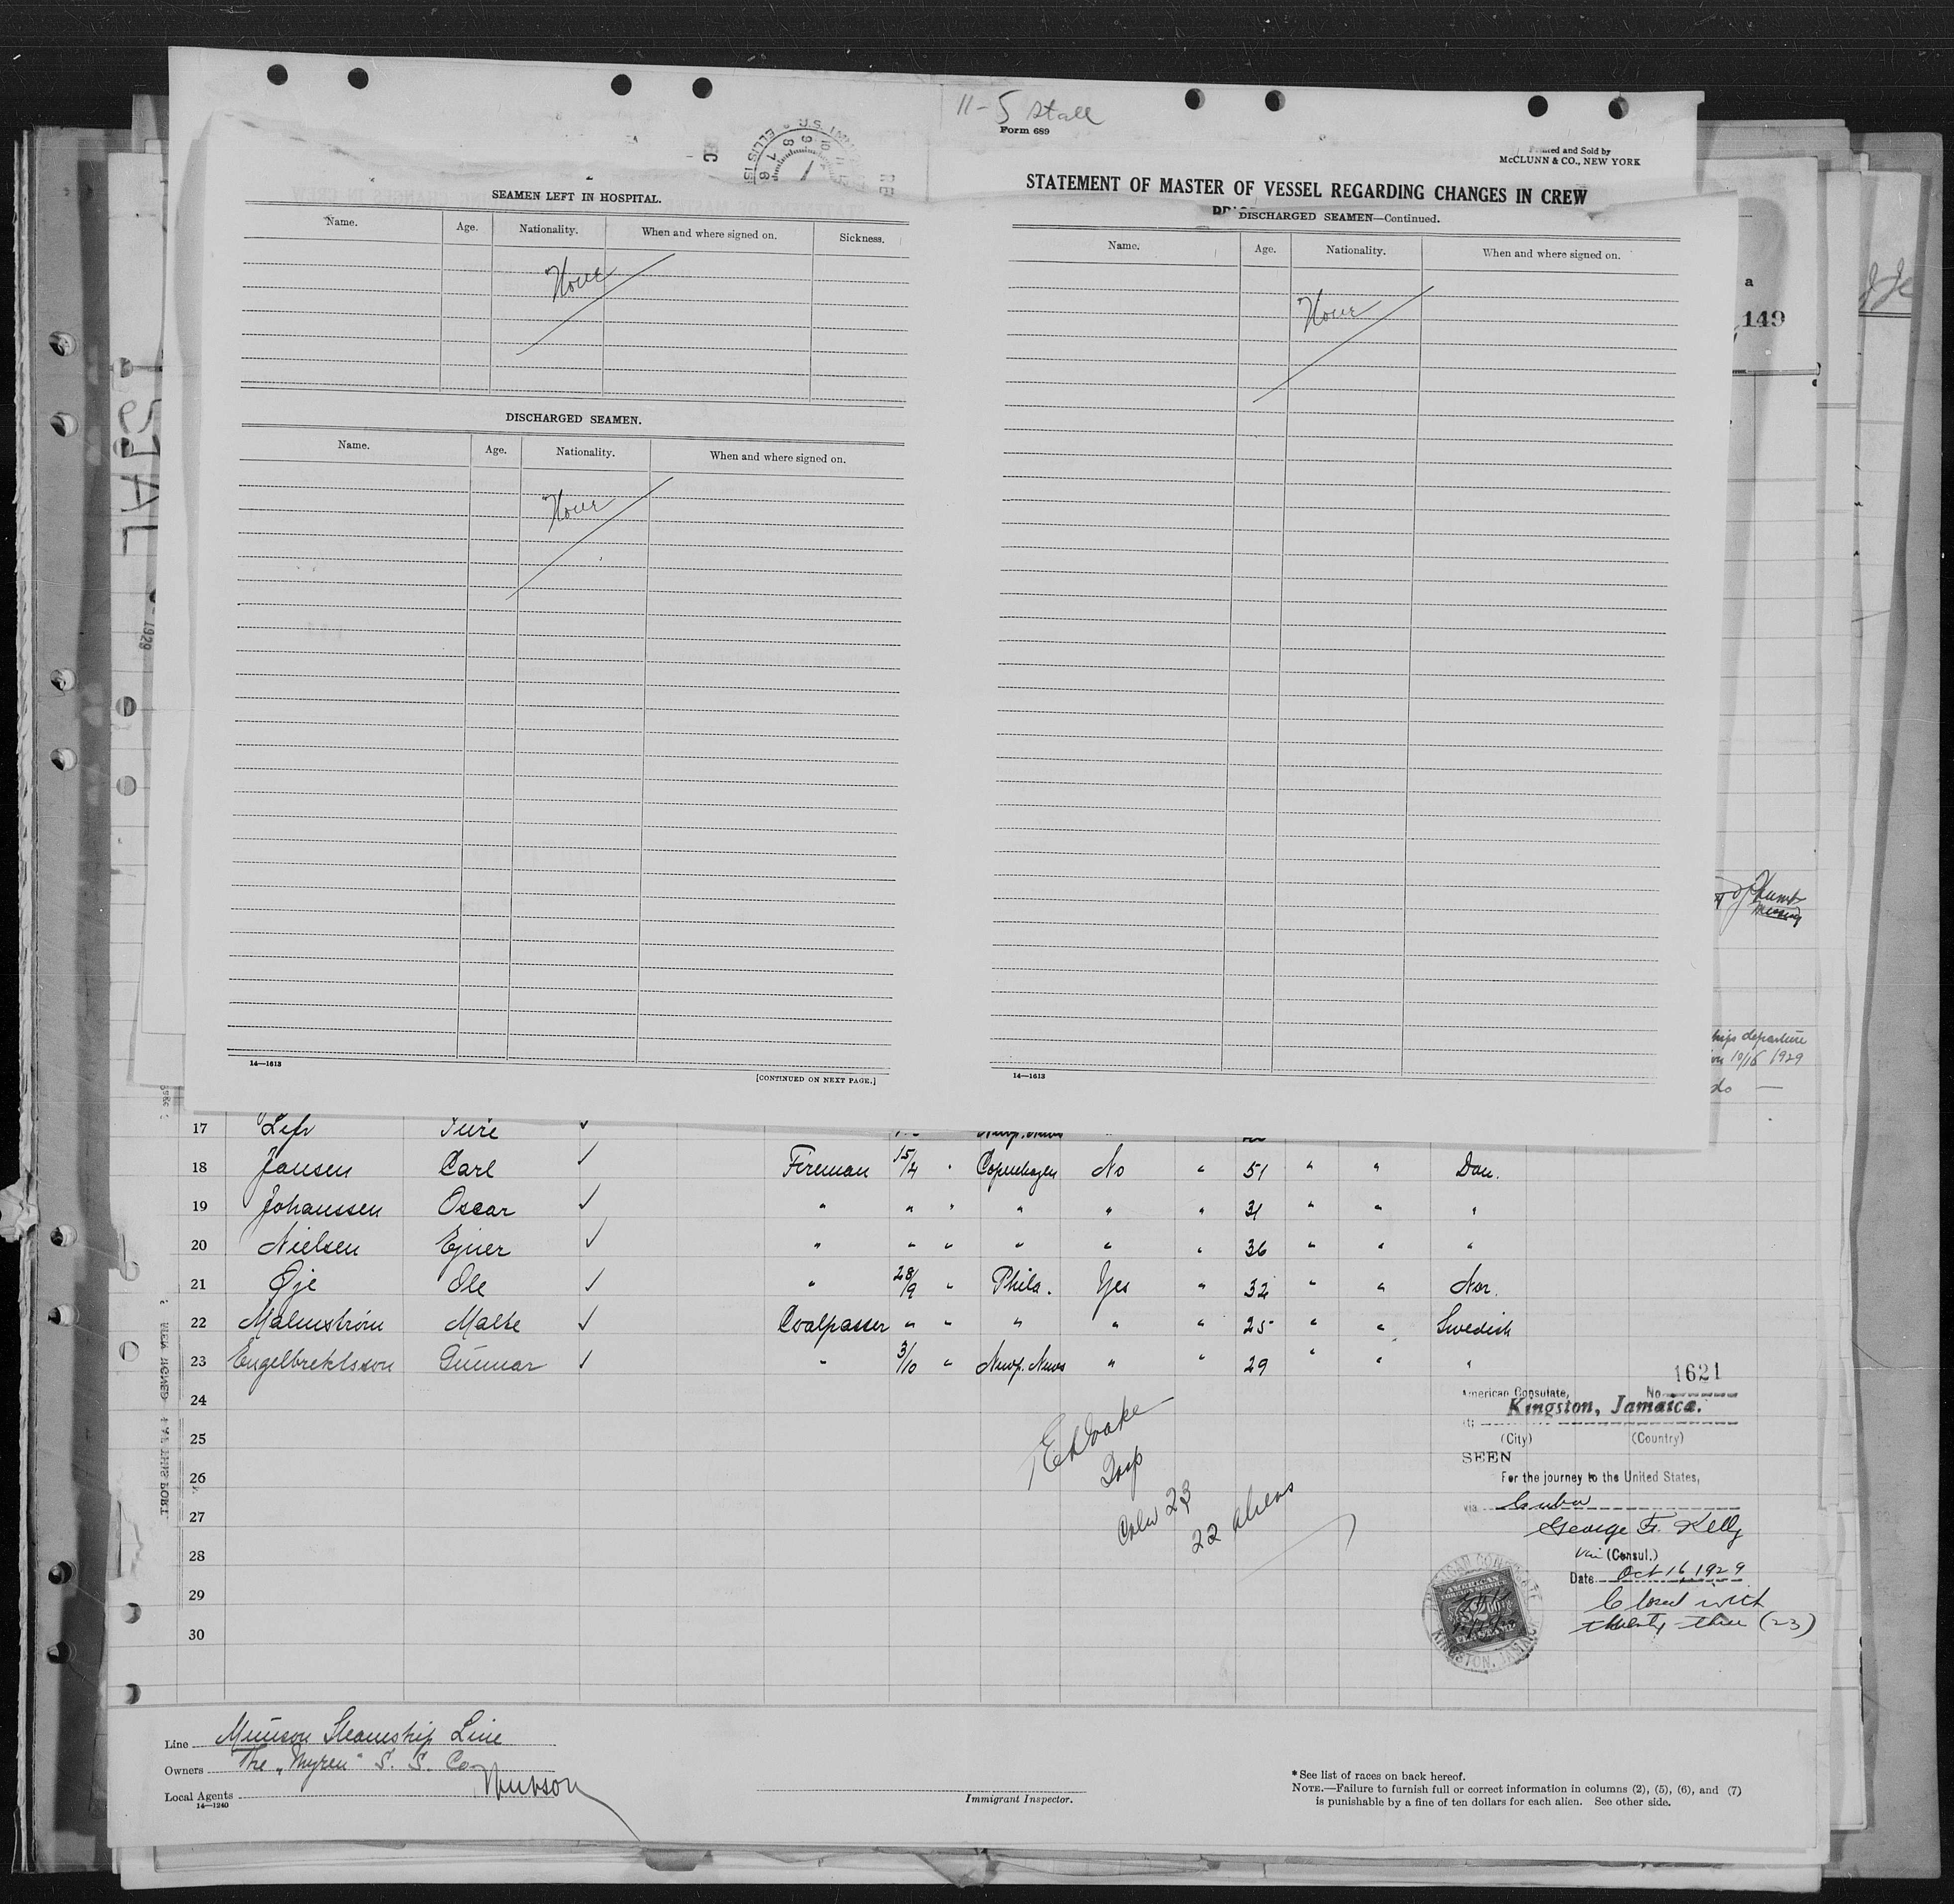 11-5 Stall
Form 689
Printed and Sold by
McCLUNN & CO., NEW YORK
STATEMENT OF MASTER OF VESSEL REGARDING CHANGES IN CREW
SEAMEN LEFT IN HOSPITAL.
Name. Age. Nationality. When and where signed on. Sickness.
None
DISCHARGED SEAMEN.
Name. Age. Nationality. When and where signed on.
None
14—1613
[CONTINUED ON NEXT PAGE.]
DISCHARGED SEAMEN—Continued.
Name. Age. Nationality. When and where signed on.
None
14—1613
a
149
1929
ships departure
10/16 1929
do —
17
18 Jansen Carl ✓ Fireman 15/4 " Copenhagen No " 51 " " Dan.
19 Johanssen Oscar ✓ " " " " " " 31 " " "
20 Nielsen Ejner ✓ " " " " " " 36 " " "
21 Øje Ole ✓ " 28/9 " Phila. Yes " 32 " " Nor.
22 Malmström Malte ✓ Coalpasser " " " " " 25 " " Swedish
23 Engelbrektsson Gunnar ✓ " 3/10 " Newp. News " " 29 " " "
24
25
26
27
28
29
30
Insp
Crew 23
22 aliens
1621
American Consulate, No.
Kingston, Jamaica.
(City) (Country)
SEEN
For the journey to the United States,
via Cuba
George F. Kelly
Vice (Consul.)
Date Oct 16, 1929
Closed with
twenty-three (23)
AMERICAN
KINGSTON, JAMAICA
Line Munson Steamship Line
Owners The "Myren" S. S. Co
Local Agents Munson
14—1240
Immigrant Inspector.
* See list of races on back hereof.
NOTE.—Failure to furnish full or correct information in columns (2), (5), (6), and (7)
is punishable by a fine of ten dollars for each alien. See other side.